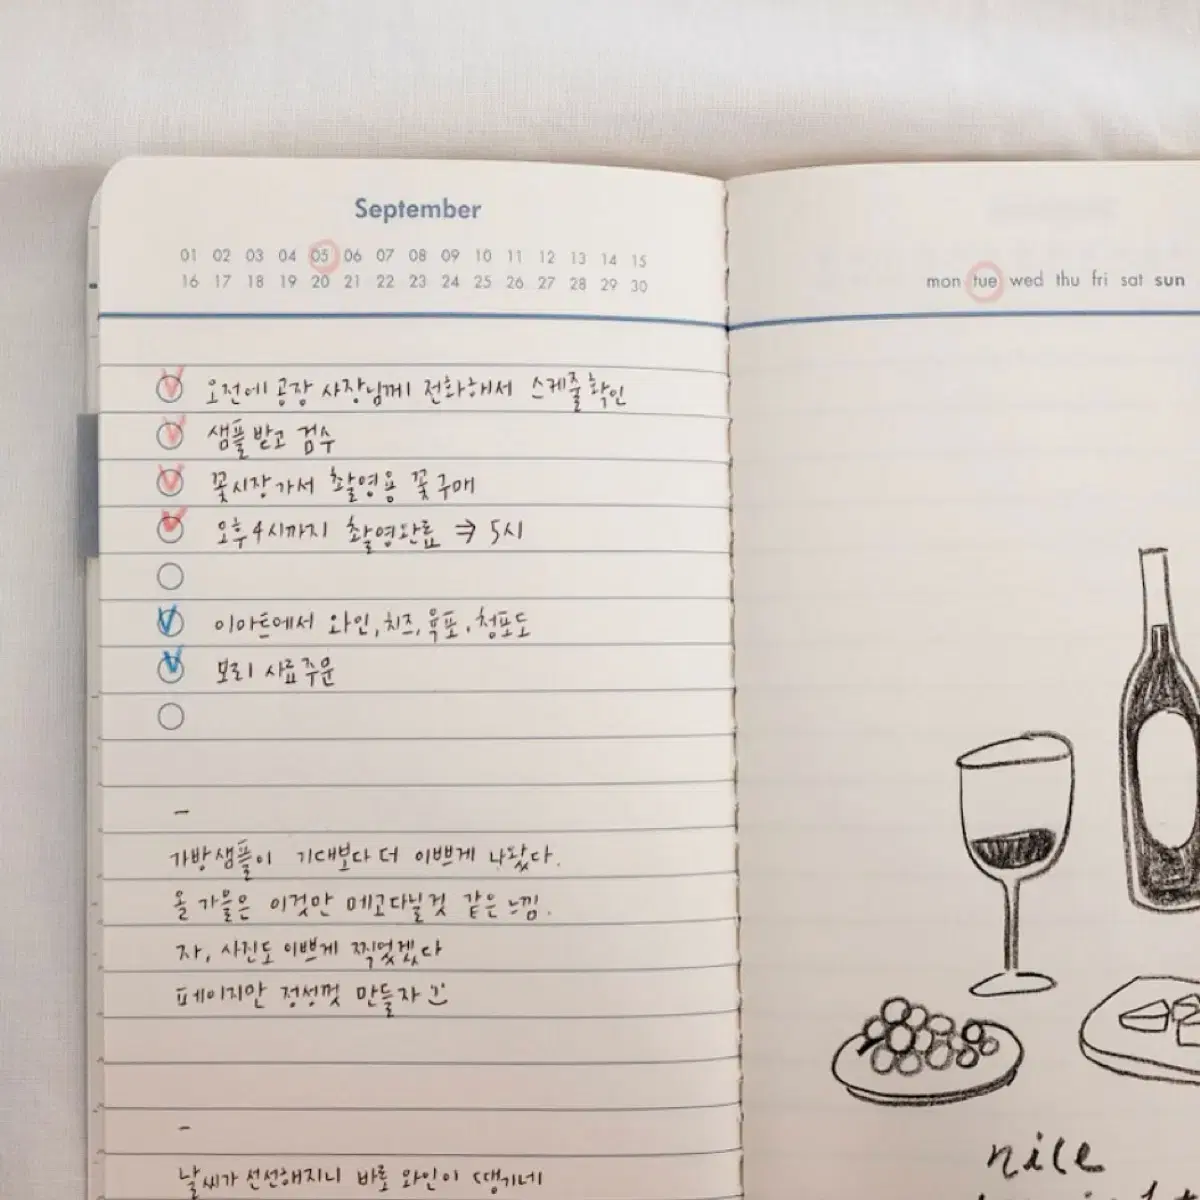 September
01 02 03 04 05 06 07 08 09 10 11 12 13 14 15
16 17 18 19 20 21 22 23 24 25 26 27 28 29 30
오전에 공장 사장님께 전화해서 스케줄확인
샘플받고 검수
꽃시장가서 촬영용 꽃구매
오후4시까지 촬영완료 ⇒ 5시
이마트에서 와인, 치즈, 육포, 청포도
보리 사료주문
-
가방샘플이 기대보다 더 이쁘게 나왔다.
올 가을은 이것만 메고다닐것 같은 느낌.
자, 사진도 이쁘게 찍었겠다
페이지만 정성껏 만들자
-
날씨가 선선해지니 바로 와인이 땡기네
mon tue wed thu fri sat sun
nice